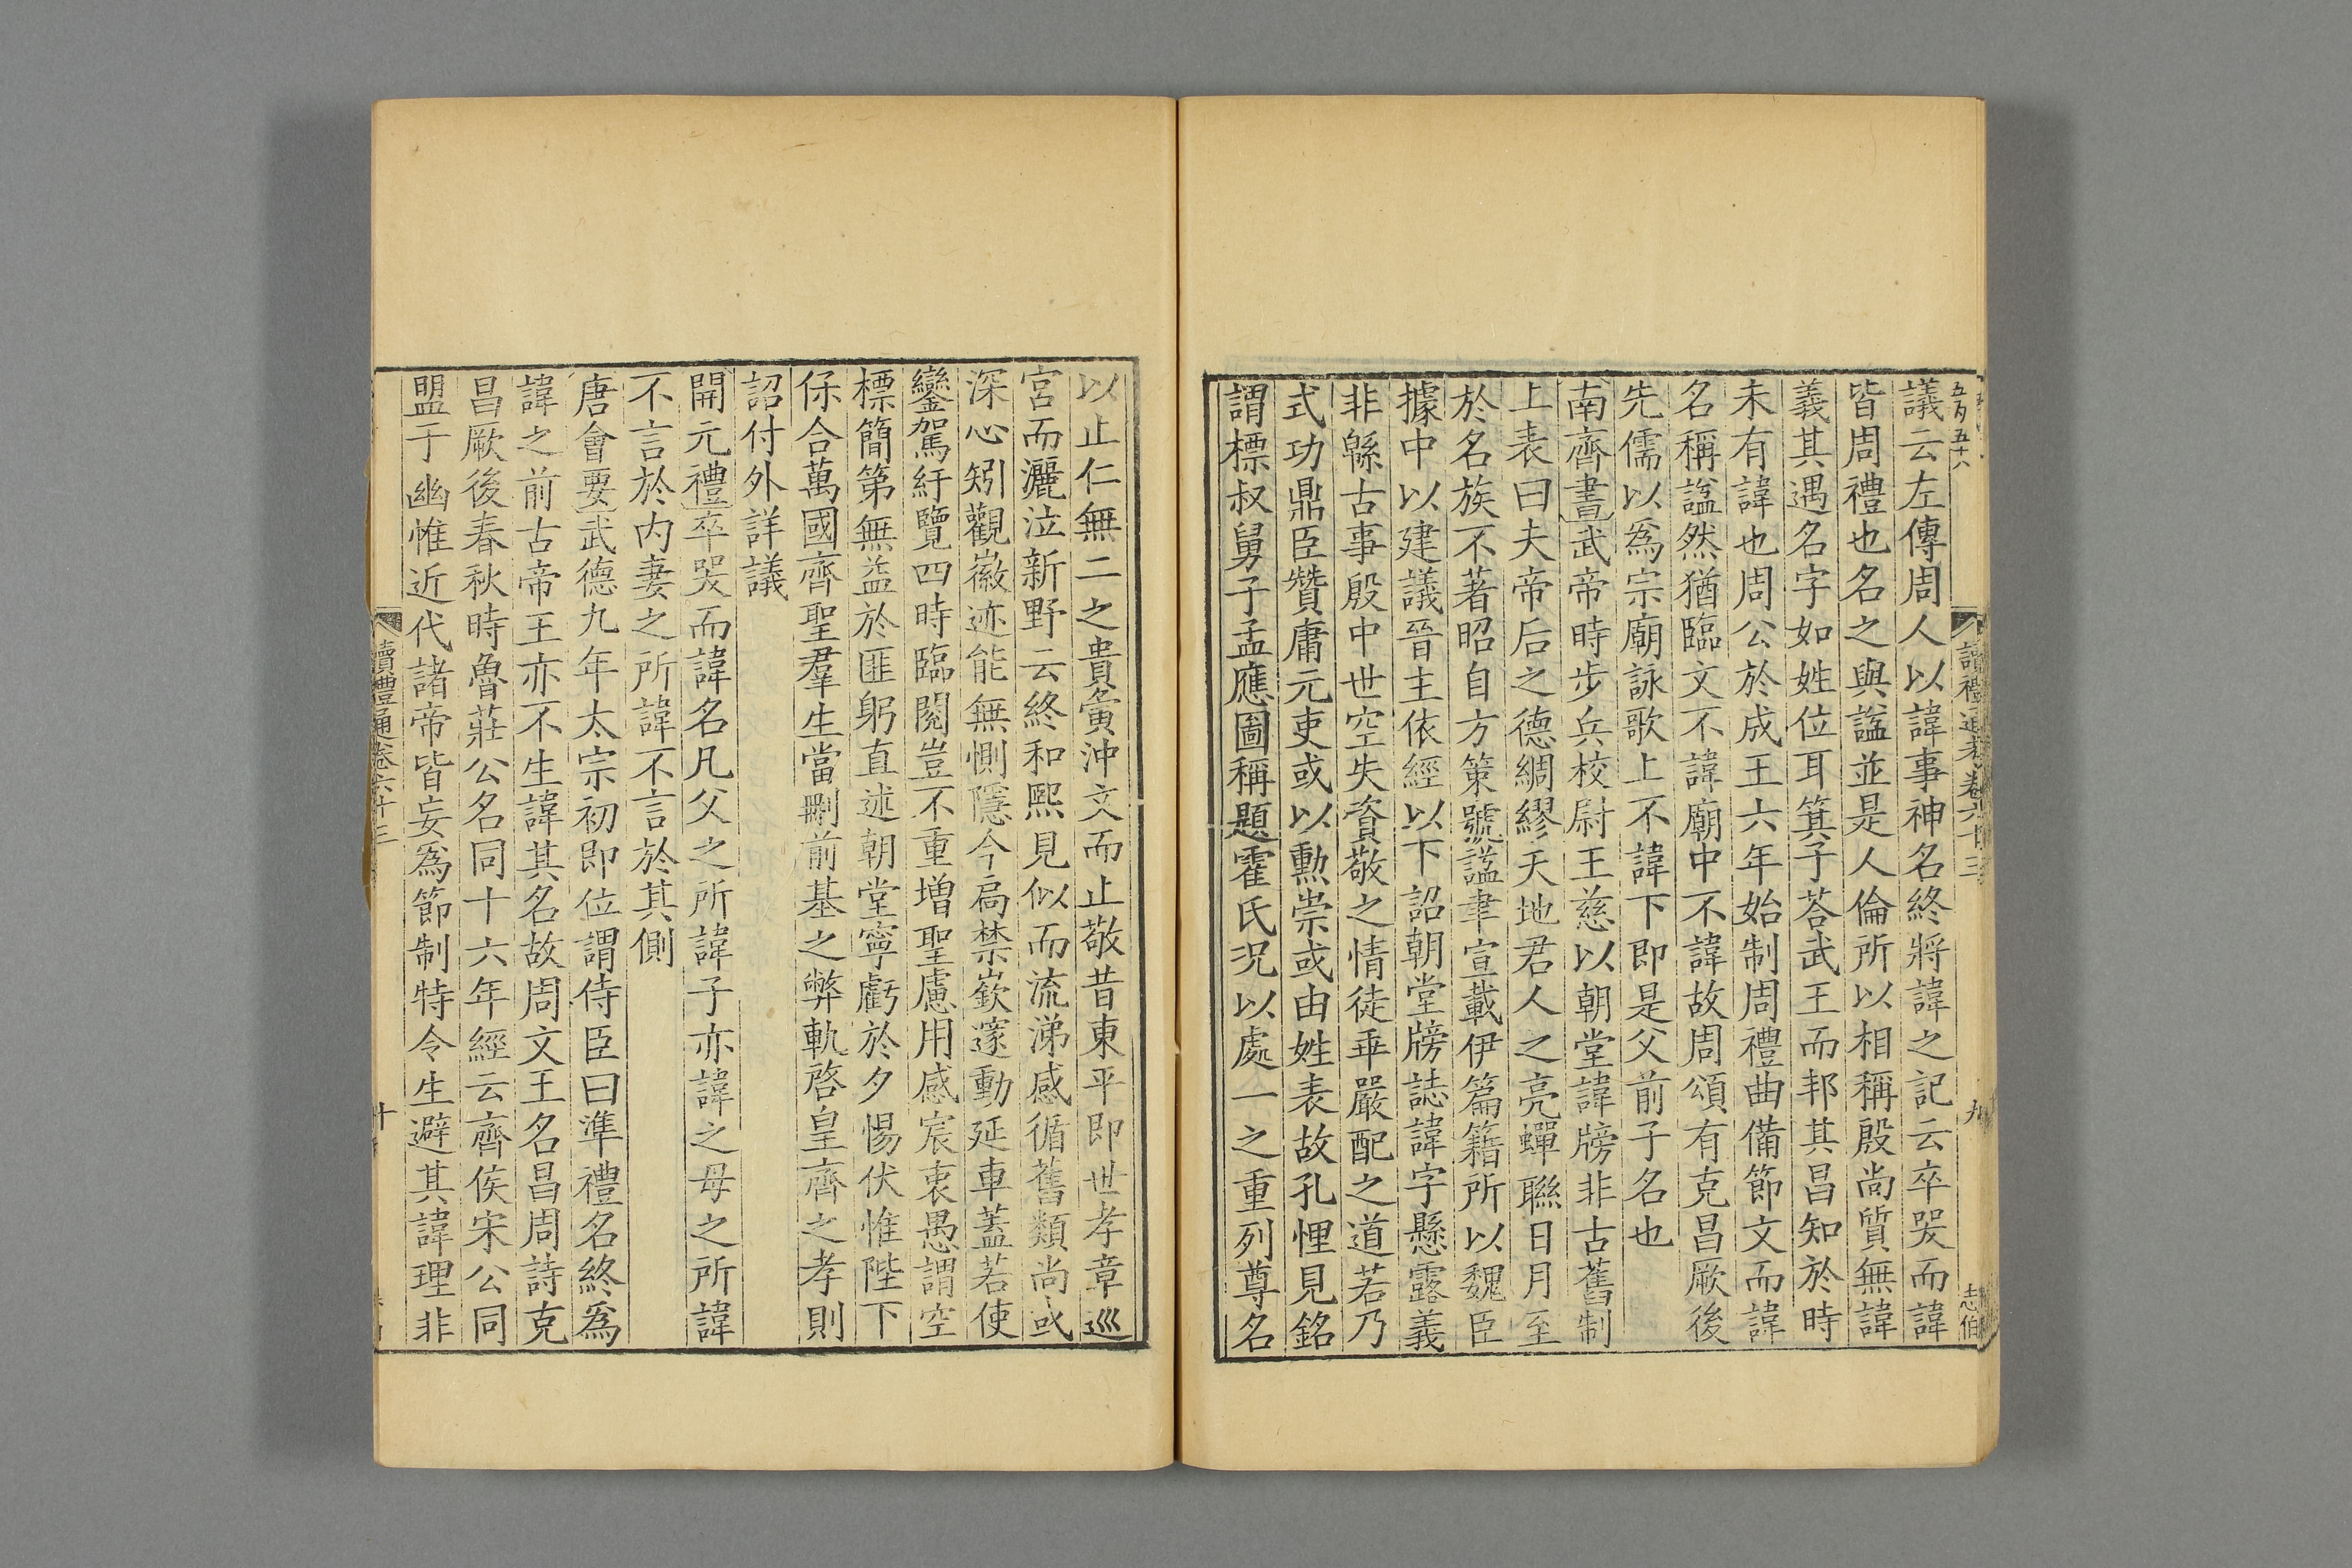 五百五十八
讀禮通考卷六十三
九
志伯
議云左傳周人以諱事神名終將諱之記云卒哭而諱
皆周禮也名之與諡並是人倫所以相稱殷尚質無諱
義其遇名字如姓位耳箕子荅武王而邦其昌知於時
未有諱也周公於成王六年始制周禮曲備節文而諱
名稱諡然猶臨文不諱廟中不諱故周頌有克昌厥後
先儒以爲宗廟詠歌上不諱下即是父前子名也
南齊書武帝時步兵校尉王慈以朝堂諱牓非古舊制
上表曰夫帝后之德綢繆天地君人之亮蟬聯日月至
於名族不著昭自方策號諡聿宣載伊篇籍所以魏臣
據中以建議晉主依經以下詔朝堂牓誌諱字懸露義
非緜古事殷中世空失資敬之情徒乖嚴配之道若乃
式功鼎臣贊庸元吏或以勳崇或由姓表故孔悝見銘
謂標叔舅子孟應圖稱題霍氏況以處一之重列尊名
以止仁無二之貴夤沖文而止敬昔東平即世孝章巡
宮而灑泣新野云終和熙見似而流涕感循舊類尚或
深心矧觀徽迹能無惻隱今扃禁嶔邃動延車蓋若使
鑾駕紆覽四時臨閱豈不重增聖慮用感宸衷愚謂空
標簡第無益於匪躬直述朝堂寧虧於夕惕伏惟陛下
保合萬國齊聖羣生當刪前基之弊軌啓皇齊之孝則
詔付外詳議
開元禮卒哭而諱名凡父之所諱子亦諱之母之所諱
不言於內妻之所諱不言於其側
唐會要武德九年太宗初即位謂侍臣曰準禮名終爲
諱之前古帝王亦不生諱其名故周文王名昌周詩克
昌厥後春秋時魯莊公名同十六年經云齊侯宋公同
盟于幽惟近代諸帝皆妄爲節制特令生避其諱理非
讀禮通考卷六十三
十